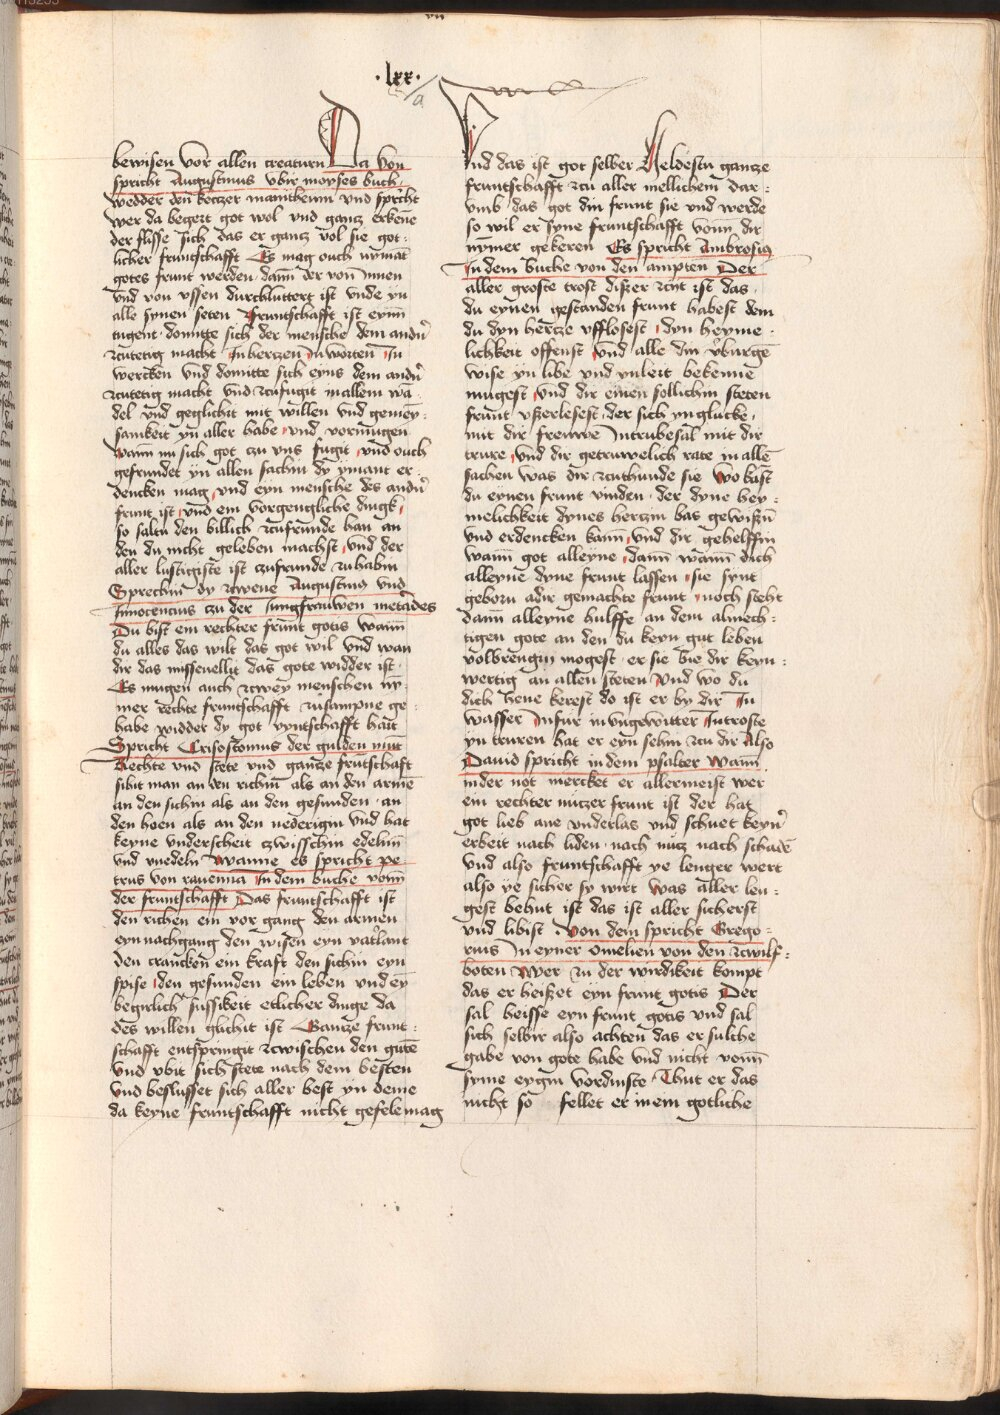 ·lxx·
a
bewisen vor allen creaturn Da von
spricht Augustinus vbir moyses buch
wedder den ketczer manitheum vnd spricht
wer da begert got wol vnd gancz erkene
der flisse sich das er gancz vol sie got:
licher fruntschafft Es mag ouch nymāt
gotes frunt werden dann der von Innen
vnd von vssen durchluttert ist vnde yn
alle synen seten Fruntschafft ist eynn
tugent domitte sich der mensche dem andn̄
zcutetig macht In hertzen In worten In
wercken vnd domitte sich eyns dem andn̄
zcutetig macht vnd zcufugit in allem wā
del vnd geglichit mit willen vnd gemey:
samkeit yn aller habe vnd vormugen
wann nu sich got czu vns fugit vnd ouch
gefrundet yn allen sachin dy ymant er
dencken mag vnd eyn mensche des andn̄
frunt ist vnd ein vorgentgliche dingk
so saltu den billich zcufrunde han an
den du nicht geleben machst vnd der
aller lustigiste ist czufrunde zcu habin
Sprechin dy zcwene Augustinus vnd
Innocencius czu der Jungfrauwen metādes
Du bist ein rechter frunt gotis wann
du alles das wilt das got wil vnd wan
dir das missevellit das gote widder ist
Es mugen auch zcwey menschen ny
mer rechte fruntschafft zcusampne ge
habe widder dy got vyntschafft hatt
Spricht Crisostomus der gulden mūt
Rechte vnd stete vnd gantze frūtschaft
sibit man an den richin als an den armē
an den sichin als an den gesunden an
den hoen als an den nederigin vnd hat
keyne vnderscheit czwisschin edelinn
vnd vnedeln wanne es spricht pe
trus von rauenna In dem buche vonn
der fruntschafft Das fruntschafft ist
den richen ein vor gang den armen
eyn nachgang den wisen eyn vatirlant
den crancken ein kraft den sichin eyn
spise den gesunden ein leben vnd ey
begirlich sussikeit etlicher dinge da
des willen glichit ist Gantze frunt:
schafft entspringit zcwischen den gutē
vnd vbit sich stete nach dem besten
vnd beslusset sich aller best yn deme
da keyne fruntschafft nicht gefele mag
Vnd das ist got selber Heldestu gantze
fruntschafft zcu aller mellichem dar:
vmb das got din frunt sie vnd werde
so wil er syne fruntschafft vonn dir
nymer gekeren Es spricht Ambrosius
In dem buche von den ampten Der
aller groste trost diszer zcyt ist das
du eynen gestanden frunt habest dem
du dyn hertze vfflosest dyn heyme
lichkeit offenst vnd alle din v̄burgē
wise yn libe vnd yn leit bekenne
mugest vnd dir einen sollichin steten
frunt vszerlesest der sich yn glucke
mit dir freuwe In trubesal mit dir
trure vnd dir getruwelich rate in allē
sachen was dir zcuthunde sie wo kūst
du eynen frunt vinden der dyne hey:
melichkeit dynes hertzin bas gewiszn̄
vnd erdencken kann vnd dir gehelffin
wann got alleyne dann wann dich
alleyne dyne frunt lassen sie synt
geborn adir gemachte frunt noch steht
dann alleyne hulffe an dem almech:
tigen gote an den du keyn gut leben
volbrengin mogest er sie bie dir keyn:
wertig an allen steten Vnd wo du
dich hene kerest do ist er by dir In
wasser In fur in vngewitter In troste
yn truren hat er eyn sehin zcu dir Also
Dauid spricht in dem psalter wann
in der not mercket er allermeist wer
ein rechter nuczer frunt ist der hat
got lieb ane vnderlas vnd schuet keyn̄
erbeit nach liden nach nucz nach schadē
vnd also fruntschafft ye lenger wert
also ye sicher sy wirt was aller len:
gest behut ist das ist aller sicherst
vnd libist Von dem spricht Grego
rius In eyner Omelien von den zcwilf:
boten wer zu der wirdikeit kompt
das er heiszet eyn frunt gotis Der
sal heisse eyn frunt gotis vnd sal
sich selbir also achten das er sulche
gabe von gote habe vnd nicht vonn
syme eygin vordinste Thut er das
nicht so fellet er in ein gotliche